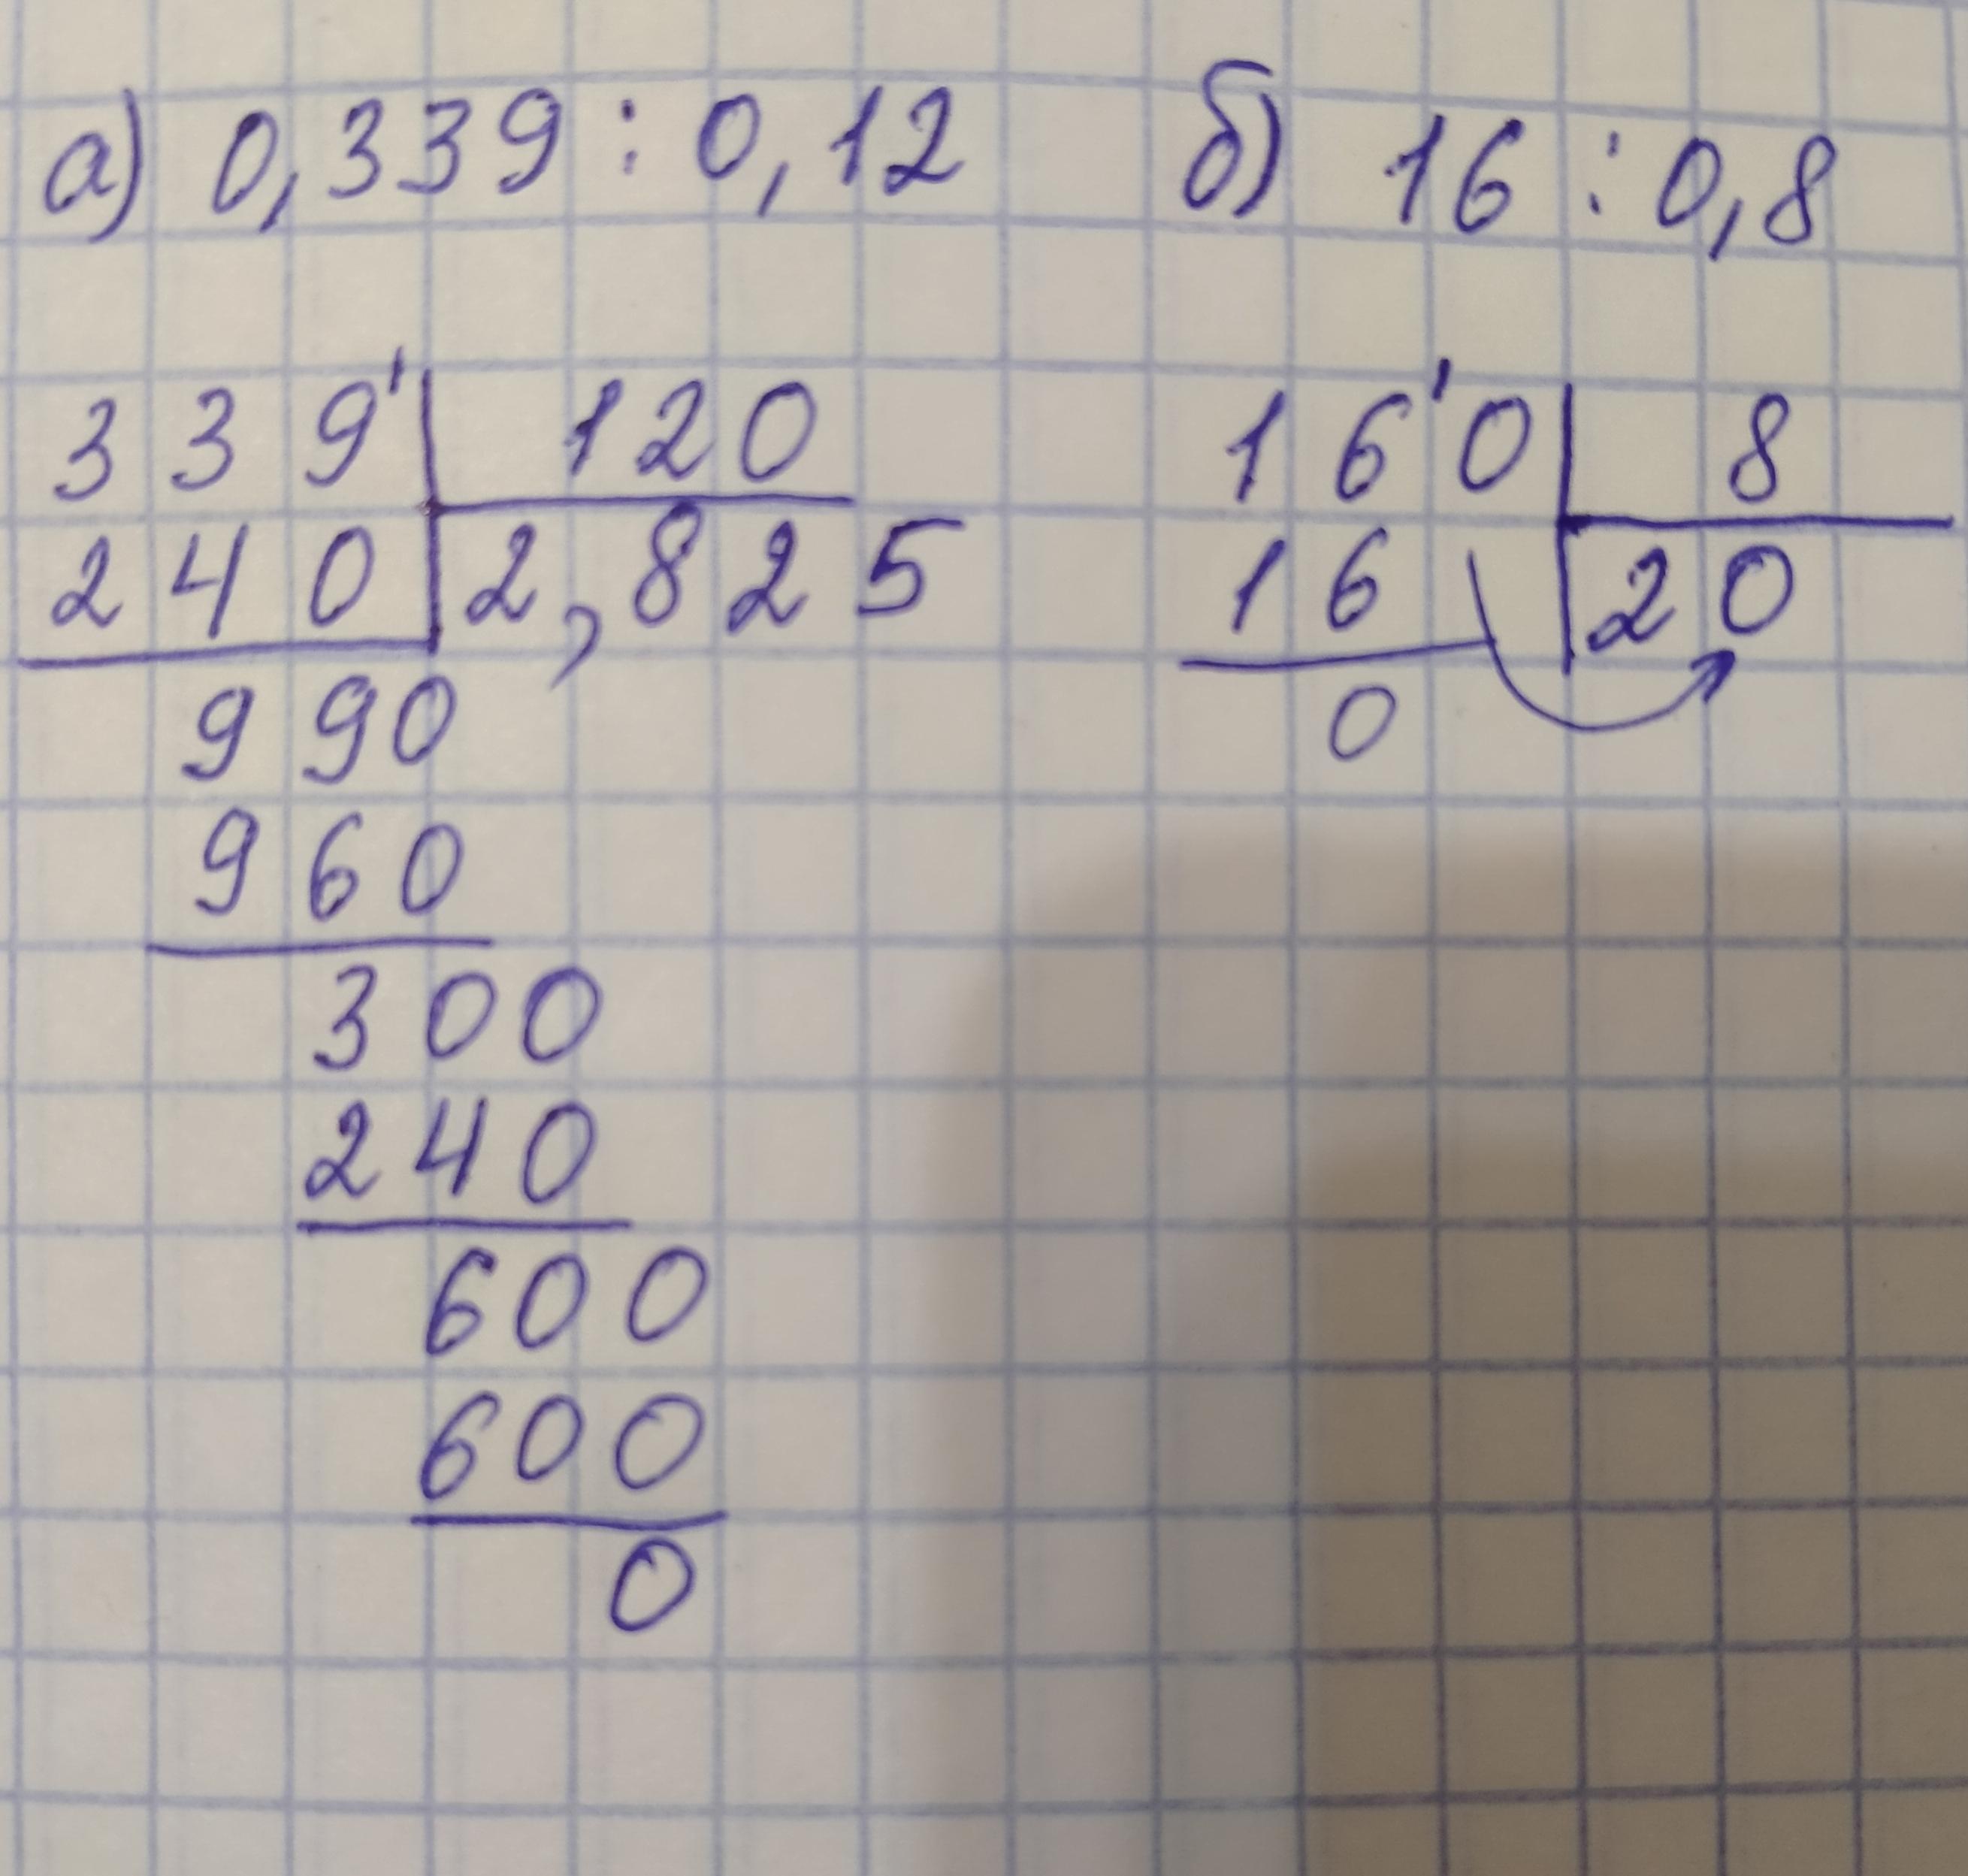 а) 0,339 : 0,12
339' 120
240 2,825
990
960
300
240
600
600
0
б) 16 : 0,8
16'0 8
16 20
0